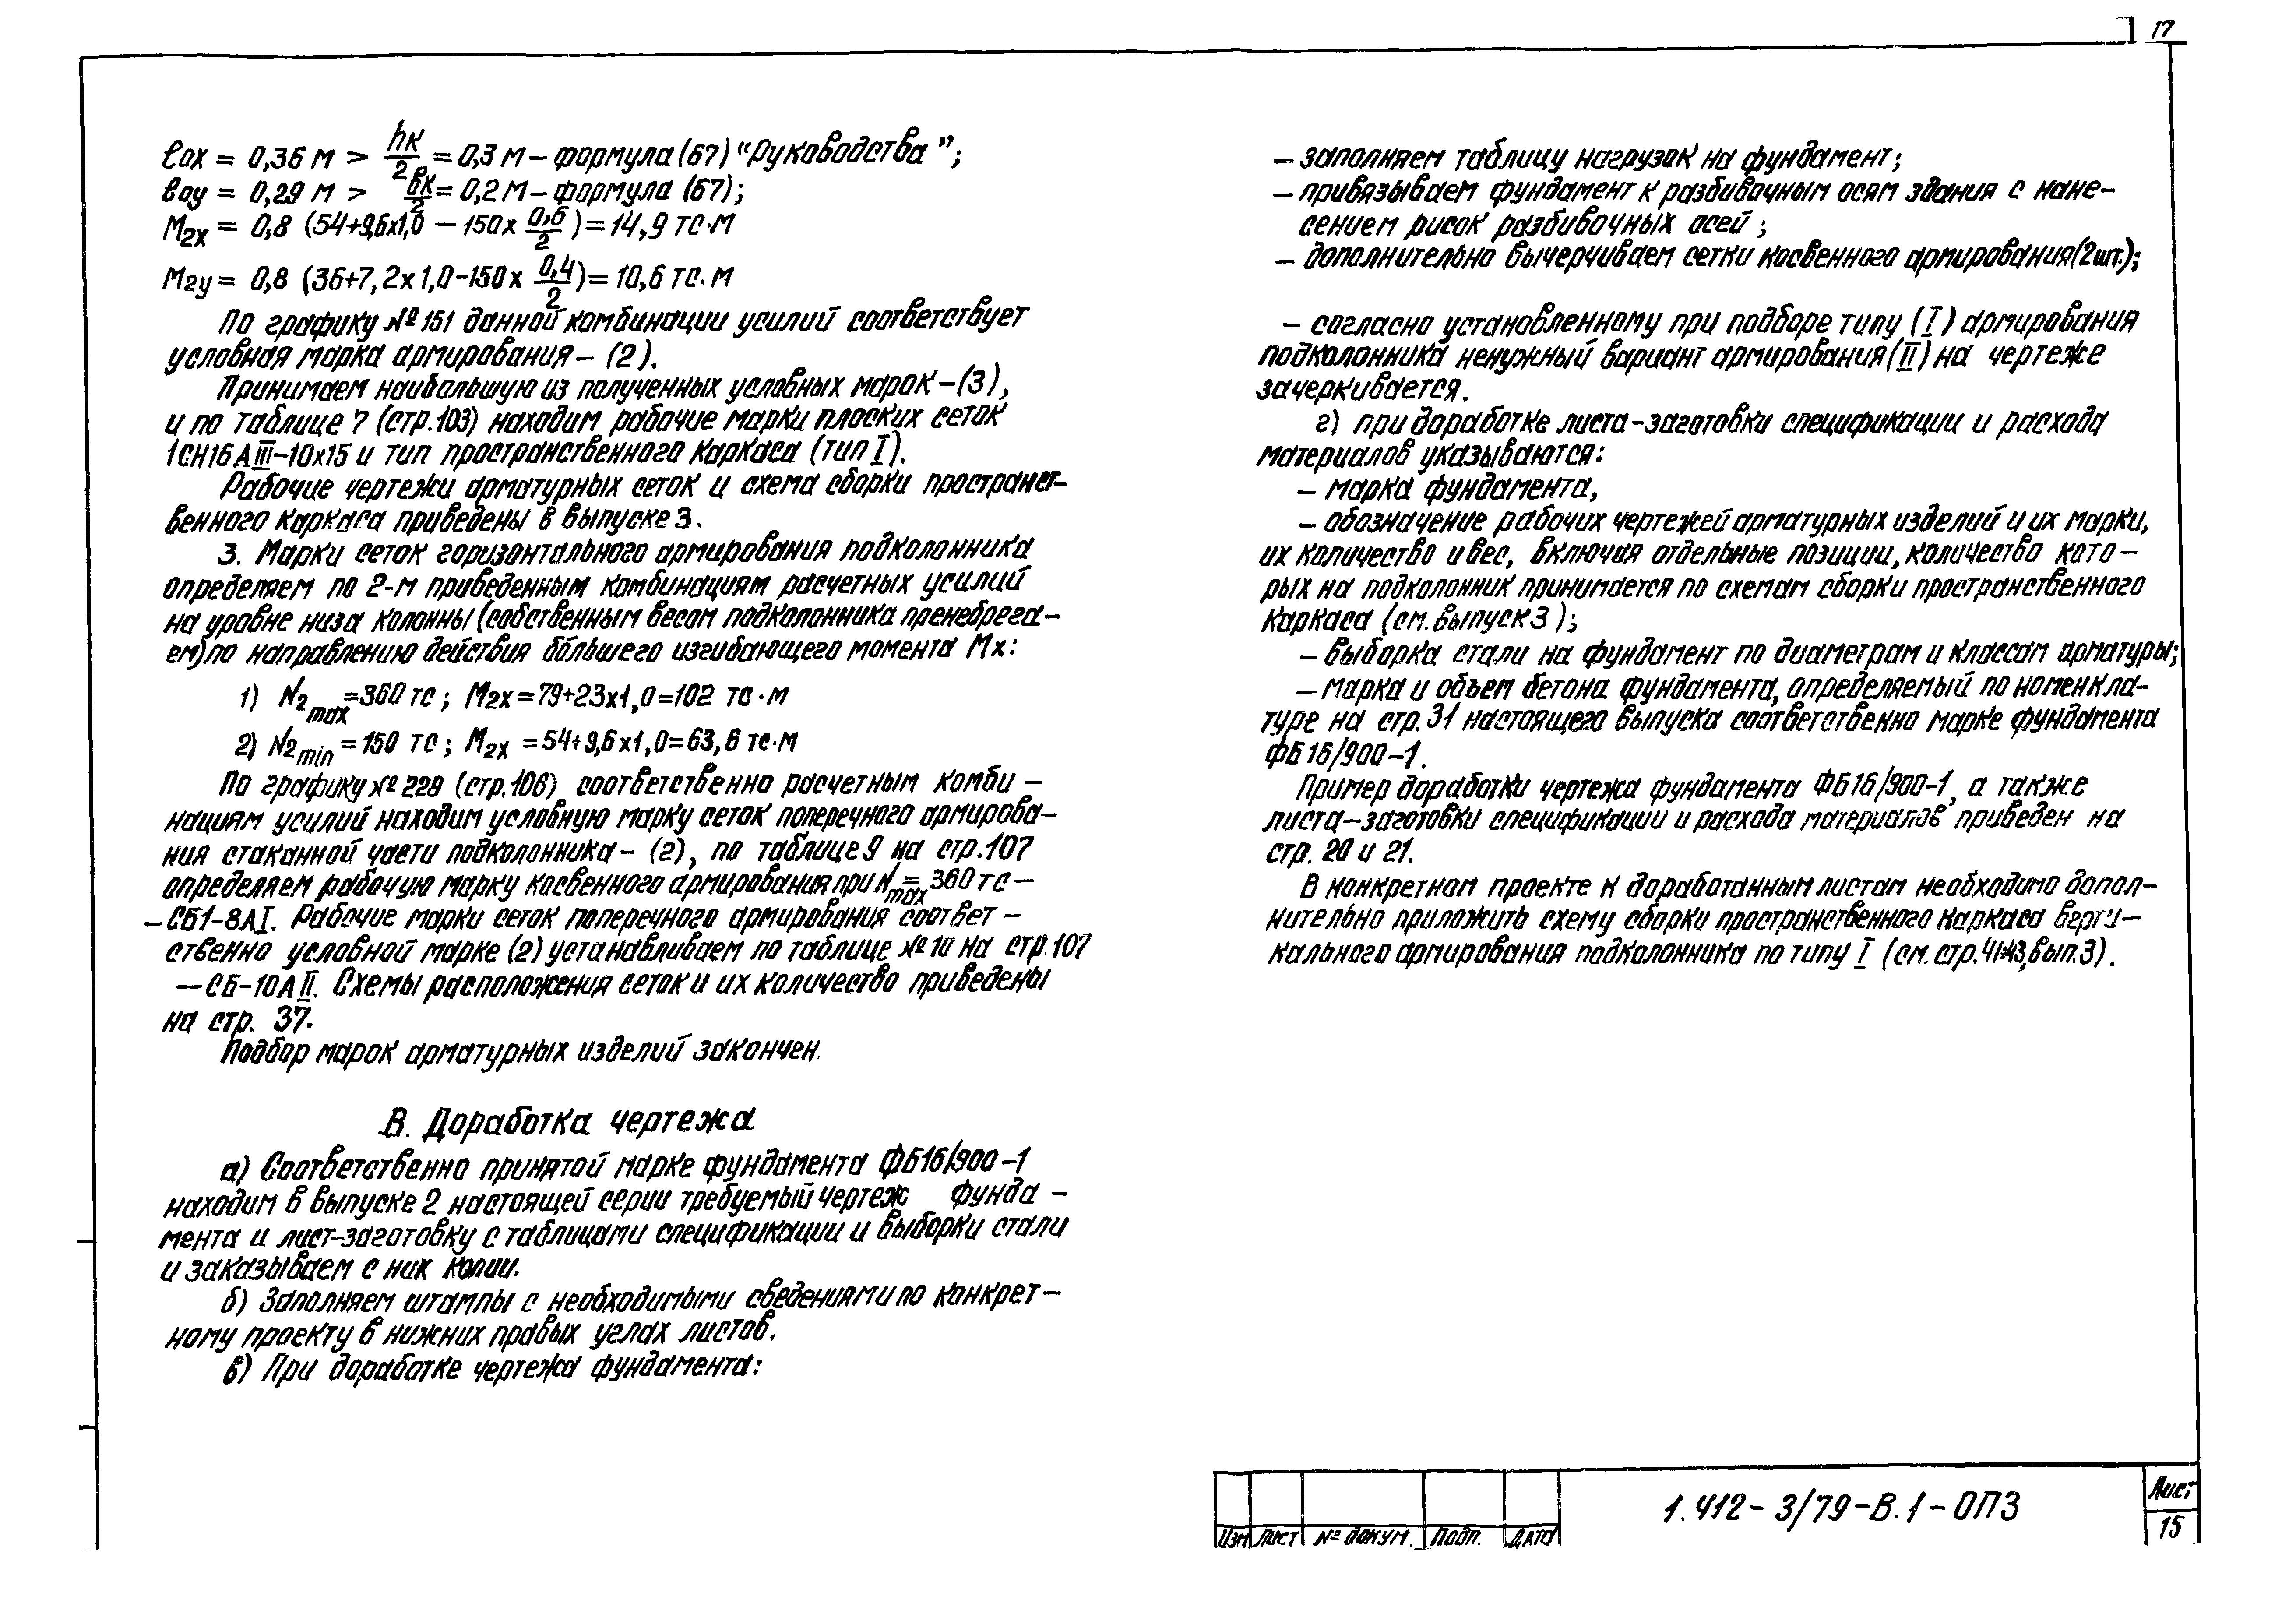 17
eox = 0,36 м > hк/2 = 0,3 м – формула (67) "Руководства";
eoy = 0,29 м > bк/2 = 0,2 м – формула (67);
M2x = 0,8 (54+9,6x1,0 – 150x 0,6/2) = 14,9 тс·м
M2y = 0,8 (36+7,2x1,0–150x 0,4/2) = 10,6 тс·м
По графику №151 данной комбинации усилий соответствует
условная марка армирования – (2).
Принимаем наибольшую из полученных условных марок – (3),
и по таблице 7 (стр.103) находим рабочие марки плоских сеток
1СН16АIII–10x15 и тип пространственного каркаса (тип I).
Рабочие чертежи арматурных сеток и схема сборки пространст-
венного каркаса приведены в выпуске 3.
3. Марки сеток горизонтального армирования подколонника
определяем по 2-м приведенным комбинациям расчетных усилий
на уровне низа колонны (собственным весом подколонника пренебрега-
ем) по направлению действия большего изгибающего момента Мх:
1) N2max = 360 тс; M2x = 79+23x1,0 = 102 тс·м
2) N2min = 150 тс; M2x = 54+9,6x1,0 = 63,6 тс·м
По графику №229 (стр.106) соответственно расчетным комби –
нациям усилий находим условную марку сеток поперечного армирова–
ния стаканной части подколонника – (2), по таблице 9 на стр.107
определяем рабочую марку косвенного армирования при Nmax = 360 тс –
– СБ1–8АI. Рабочие марки сеток поперечного армирования соответ –
ственно условной марке (2) устанавливаем по таблице №10 на стр.107
– СБ–10АII. Схемы расположения сеток и их количество приведены
на стр. 37.
Подбор марок арматурных изделий закончен.
В. Доработка чертежа
а) Соответственно принятой марке фундамента ФБ16/900–1
находим в выпуске 2 настоящей серии требуемый чертеж фунда –
мента и лист-заготовку с таблицами спецификации и выборки стали
и заказываем с них копии.
б) Заполняем штампы с необходимыми сведениями по конкрет–
ному проекту в нижних правых углах листов.
в) При доработке чертежа фундамента:
– заполняем таблицу нагрузок на фундамент;
– привязываем фундамент к разбивочным осям здания с нане–
сением рисок разбивочных осей;
– дополнительно вычерчиваем сетки косвенного армирования (2шт.);
– согласно установленному при подборе типу (I) армирования
подколонника ненужный вариант армирования (II) на чертеже
зачеркивается.
г) при доработке листа-заготовки спецификации и расхода
материалов указываются:
– марка фундамента,
– обозначение рабочих чертежей арматурных изделий и их марки,
их количество и вес, включая отдельные позиции, количество кото –
рых на подколонник принимается по схемам сборки пространственного
каркаса (см. выпуск 3);
– выборка стали на фундамент по диаметрам и классам арматуры;
– марка и объем бетона фундамента, определяемый по номенкла–
туре на стр. 31 настоящего выпуска соответственно марке фундамента
ФБ16/900–1.
Пример доработки чертежа фундамента ФБ16/900–1, а также
листа–заготовки спецификации и расхода материалов приведен на
стр. 20 и 21.
В конкретном проекте к доработанным листам необходимо допол–
нительно приложить схему сборки пространственного каркаса верти–
кального армирования подколонника по типу I (см. стр. 41÷43, вып.3).
Изм Лист № докум. Подп. Дата
1.412–3/79–В.1–ОПЗ
Лист
15